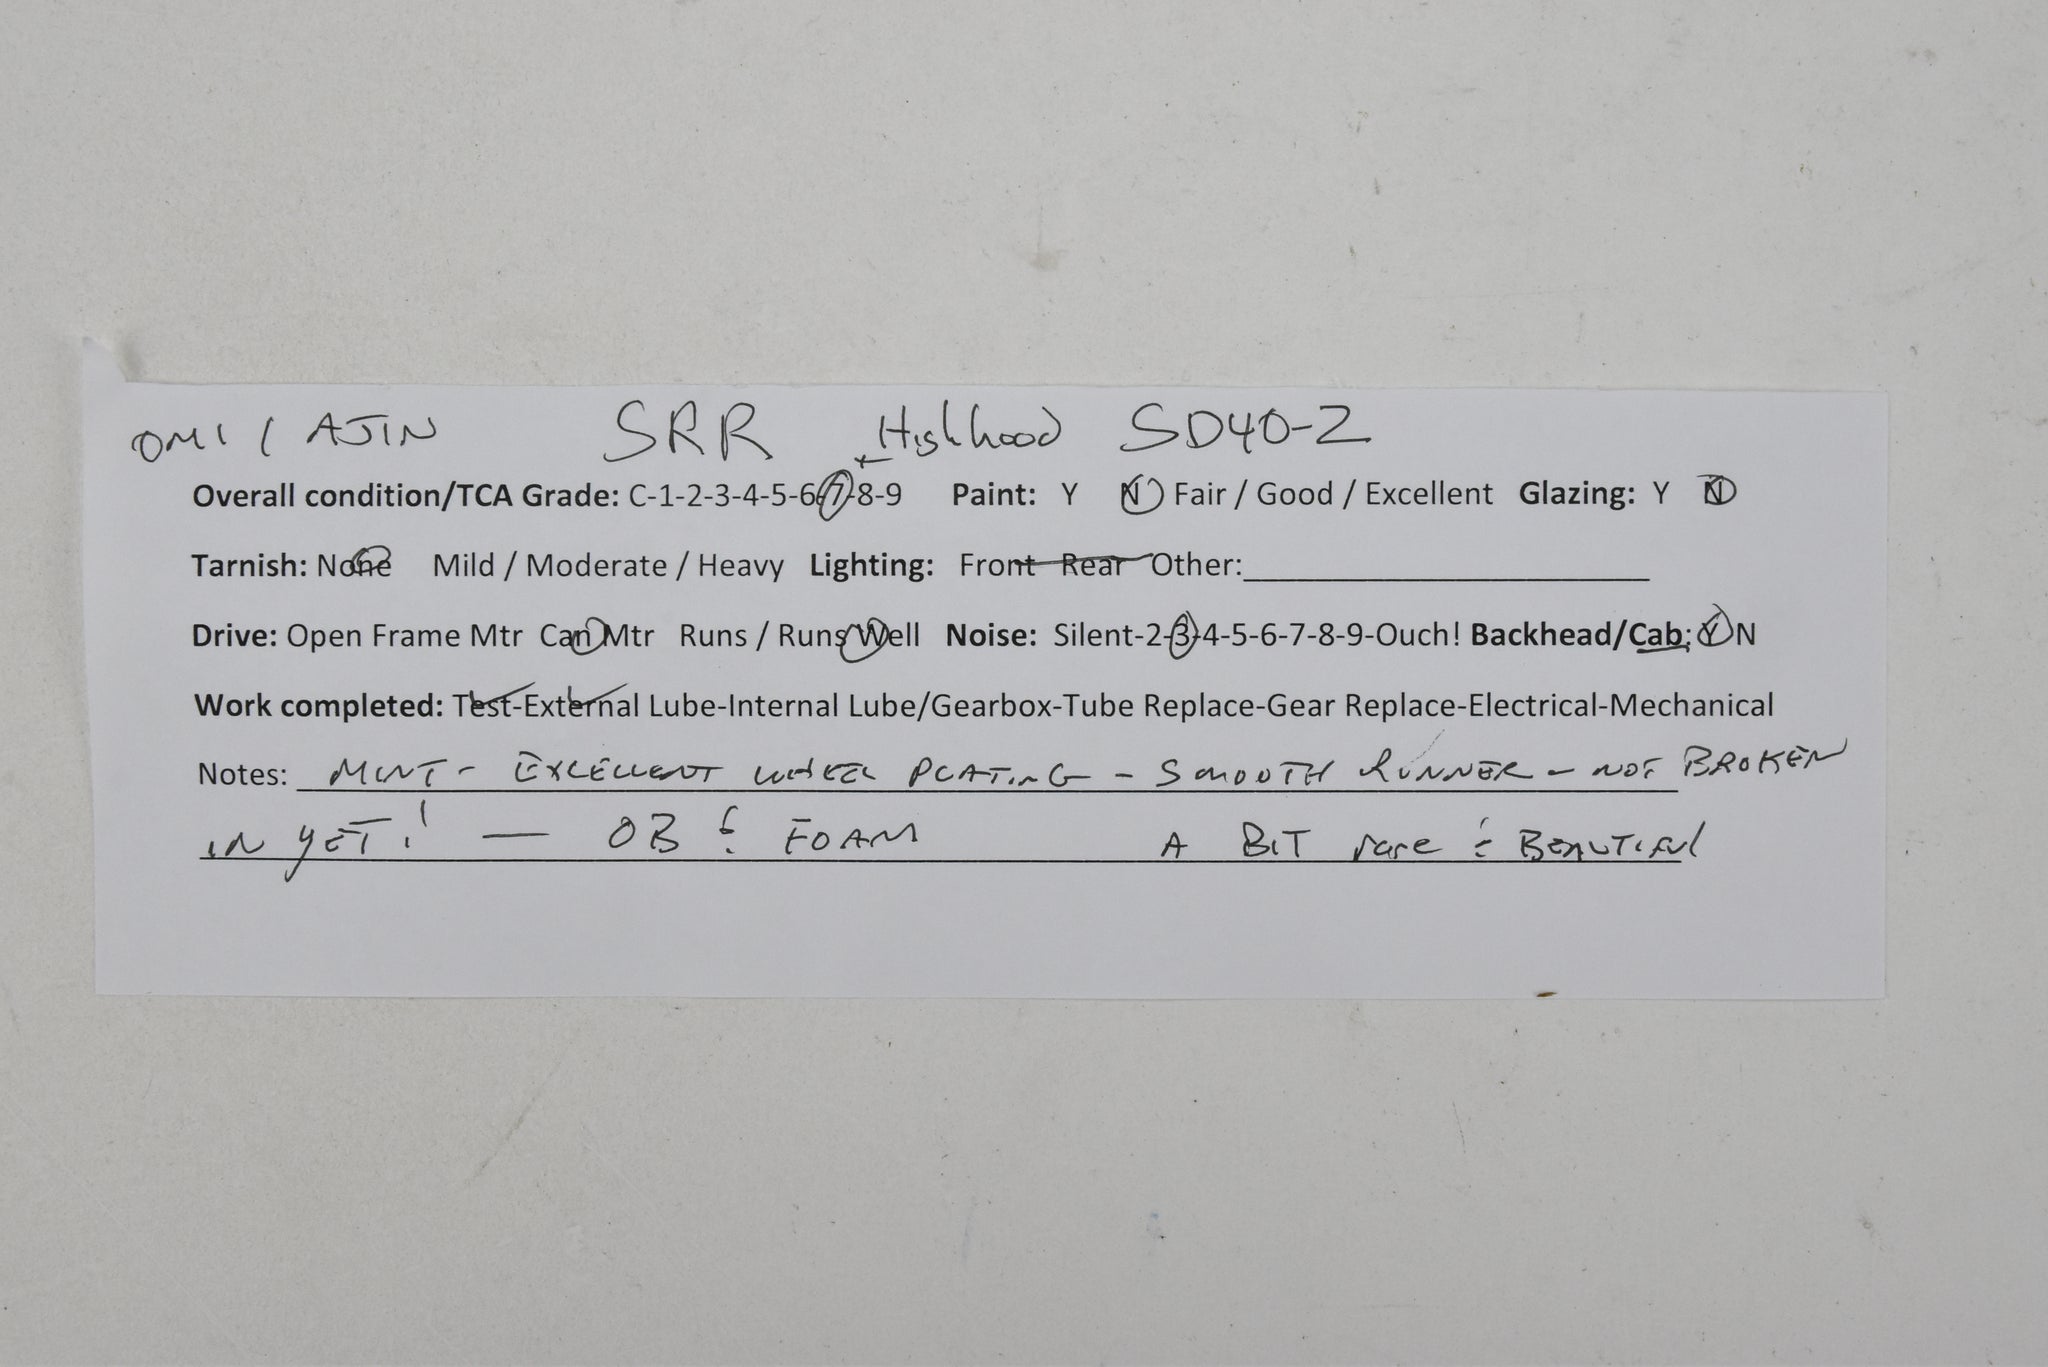 OMI / AJIN SRR Highhood SD40-2
Overall condition/TCA Grade: C-1-2-3-4-5-6-7-8-9 Paint: Y N Fair / Good / Excellent Glazing: Y N
Tarnish: None Mild / Moderate / Heavy Lighting: Front Rear Other:
Drive: Open Frame Mtr Can Mtr Runs / Runs Well Noise: Silent-2-3-4-5-6-7-8-9-Ouch! Backhead/Cab: Y N
Work completed: Test-External Lube-Internal Lube/Gearbox-Tube Replace-Gear Replace-Electrical-Mechanical
Notes: MINT - EXCELLENT WHEEL PLATING - SMOOTH RUNNER - NOT BROKEN
IN YET! — OB & FOAM A BIT rare & BEAUTIFUL